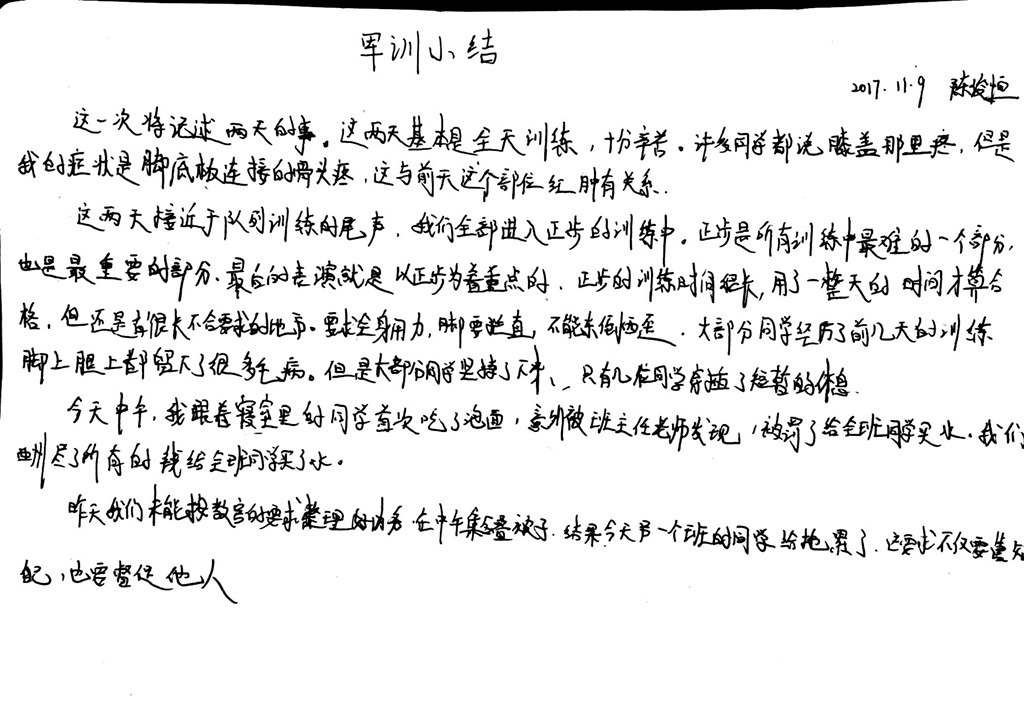 军训小结
2017.11.9 陈
这一次将记述两天的事。这两天基本是全天训练，十分辛苦。许多同学都说膝盖那里疼，但是
我的症状是脚底板连接的骨头疼，这与前天这个部位红肿有关系.
这两天接近于队列训练的尾声，我们全部进入正步的训练中。正步是所有训练中最难的一个部分，
也是最重要的部分.最后的表演就是以正步为着重点的.正步的训练时间很长，用了一整天的时间才算合
格，但还是有很大不合要求的地方。要求全身用力，脚要绷直，不能东倒西歪.大部分同学经历了前几天的训练
脚上腿上都留下了很多毛病。但是大部分同学坚持了下来、只有几位同学了短暂的休息.
今天中午，我跟着寝室里的同学首次吃了泡面，意外被班主任老师发现，被罚了给全班同学买水。我们
尽了所有的钱给全班同学买了水。
昨天我们未能按教官的要求整理的内务在中午集合叠被子.结果今天另一个班的同学给拖累了.这要求不仅要
自己，也要督促他人